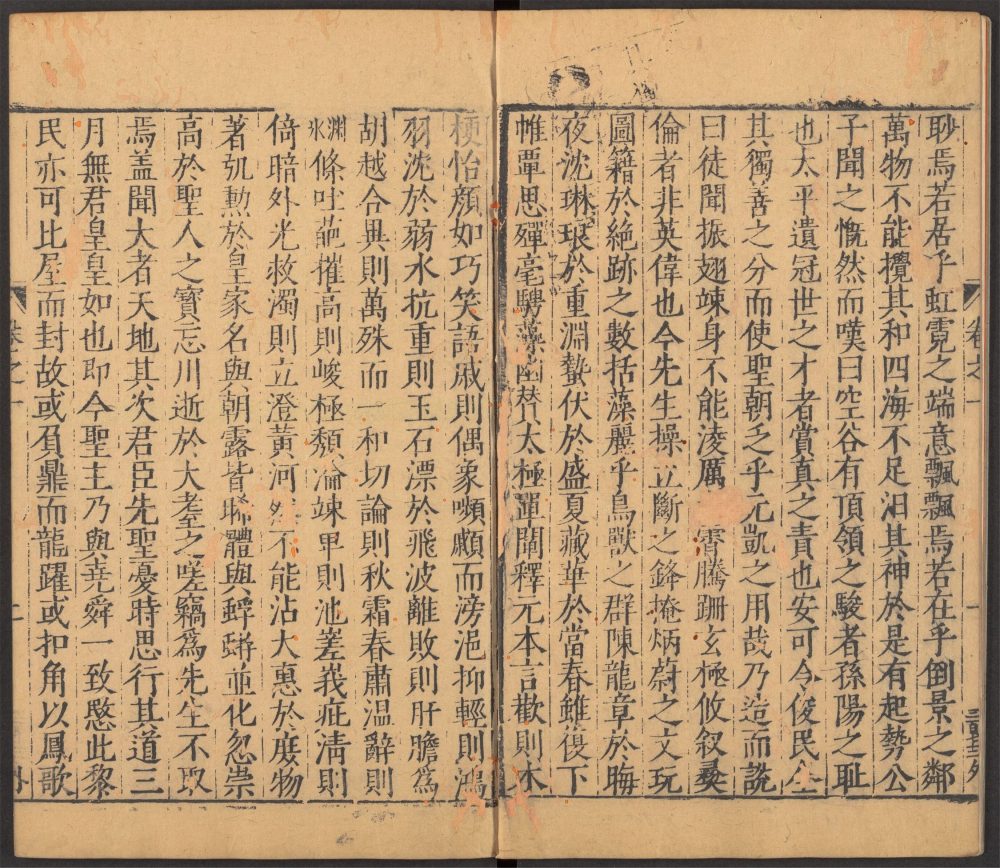 眇焉若居乎虹霓之端意飄飄焉若在乎倒景之鄰
萬物不能攪其和四海不足汨其神於是有赴勢公
子聞之慨然而嘆曰空谷有項領之駿者孫陽之耻
也太平遺冠世之才者賞真之責也安可令俊民全
其獨善之分而使聖朝乏乎元凱之用哉乃造而說
曰徒聞振翅竦身不能淩厲 霄騰跚玄極攸叙彝
倫者非英偉也今先生操立斷之鋒掩炳蔚之文玩
圖籍於絶跡之數括藻麗乎鳥獸之群陳龍章於晦
夜沈琳琅於重淵蟄伏於盛夏藏華於當春雖復下
帷覃思殫毫騁藻幽贊太極闡釋元本言歡則木
梗怡顏如巧笑語戚則偶象嚬顣而滂浥抑輕則鴻
羽沈於弱水抗重則玉石漂於飛波離敗則肝膽爲
胡越合異則萬殊而一和切論則秋霜春肅温辭則
氷條吐葩摧高則峻極頹淪竦卑則池嵳峩疵淸則
倚暗外光救濁則立澄黃河然不能沾大惠於庻物
著弘勳於皇家名與朝露皆晞體與蜉蝣並化忽崇
高於聖人之寳忘川逝於大耋之嗟竊爲先生不取
焉盖聞大者天地其次君臣先聖憂時思行其道三
月無君皇皇如也即今聖主乃與堯舜一致愍此黎
民亦可比屋而封故或負鼎而龍躍或扣角以鳳歌
卷之一